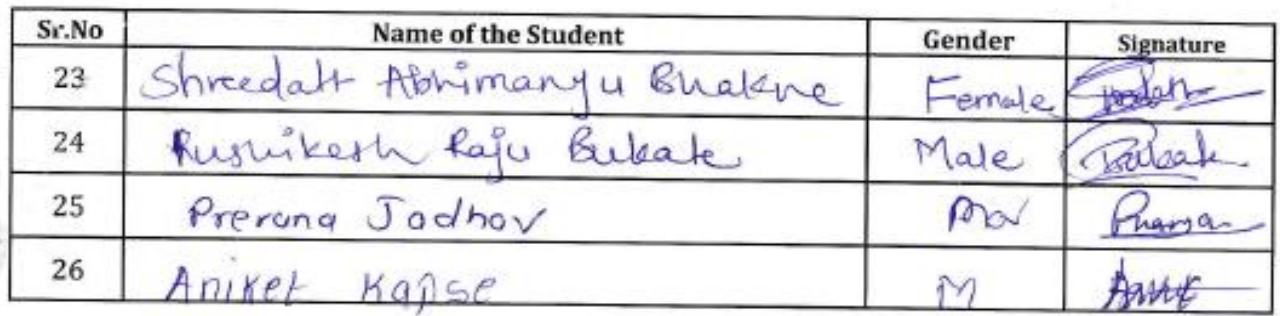 Sr.No Name of the Student Gender Signature
23 Shreedatt Abhimanyu Bhakne Female
24 Rushikesh Raju Bukate Male Bukate
25 Prerana Jadhav
26 Aniket Kapse M